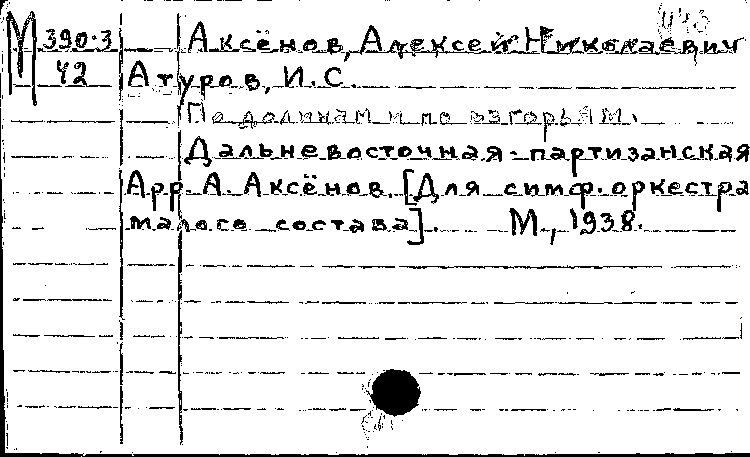 М 390-3 Аксёнов, Алексей Николаевич
42 Атуров, И.С.
По долинам и по взгорьям.
Дальневосточная-партизанская
Арр. А. Аксёнов. [Для симф. оркестра
малого состава]. М., 1938.